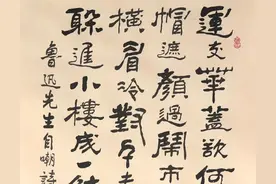 運交華蓋欲何
帽遮顏過鬧市
橫眉冷對千夫
躲進小樓成一
魯迅先生自嘲詩